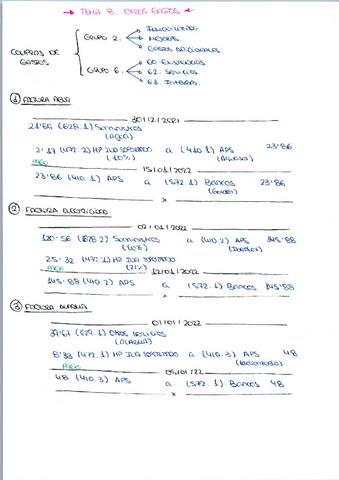 → TEMA 8. OTROS GASTOS ←
COMPRAS DE GASTOS
GRUPO 2.
INMOVILIZADO
MEJORAS
GASTOS ADICIONALES
GRUPO 6.
62. SERVICIOS
① FACTURA AGUA
30/12/2021
21'69 (628.1) Suministros
(AGUA)
2'17 (472.2) HP IVA SOPORTADO a (410.1) APS 23'86
(10%)
PAGO
15/01/2022
23'86 (410.1) APS a (572.1) Bancos 23'86
x
② FACTURA ELECTRICIDAD
02/01/2022
120'56 (628.2) Suministros a (410.2) APS 145'88
25'32 (472.1) HP IVA SOPORTADO
(21%)
PAGO
12/01/2022
145'88 (410.2) APS a (572.1) Bancos 145'88
x
③ FACTURA ALARMA
01/01/2022
39'67 (629.1) Otros servicios
(ALARMA)
8'33 (472.1) HP IVA SOPORTADO a (410.3) APS 48
PAGO
05/01/22
48 (410.3) APS a (572.1) Bancos 48
x